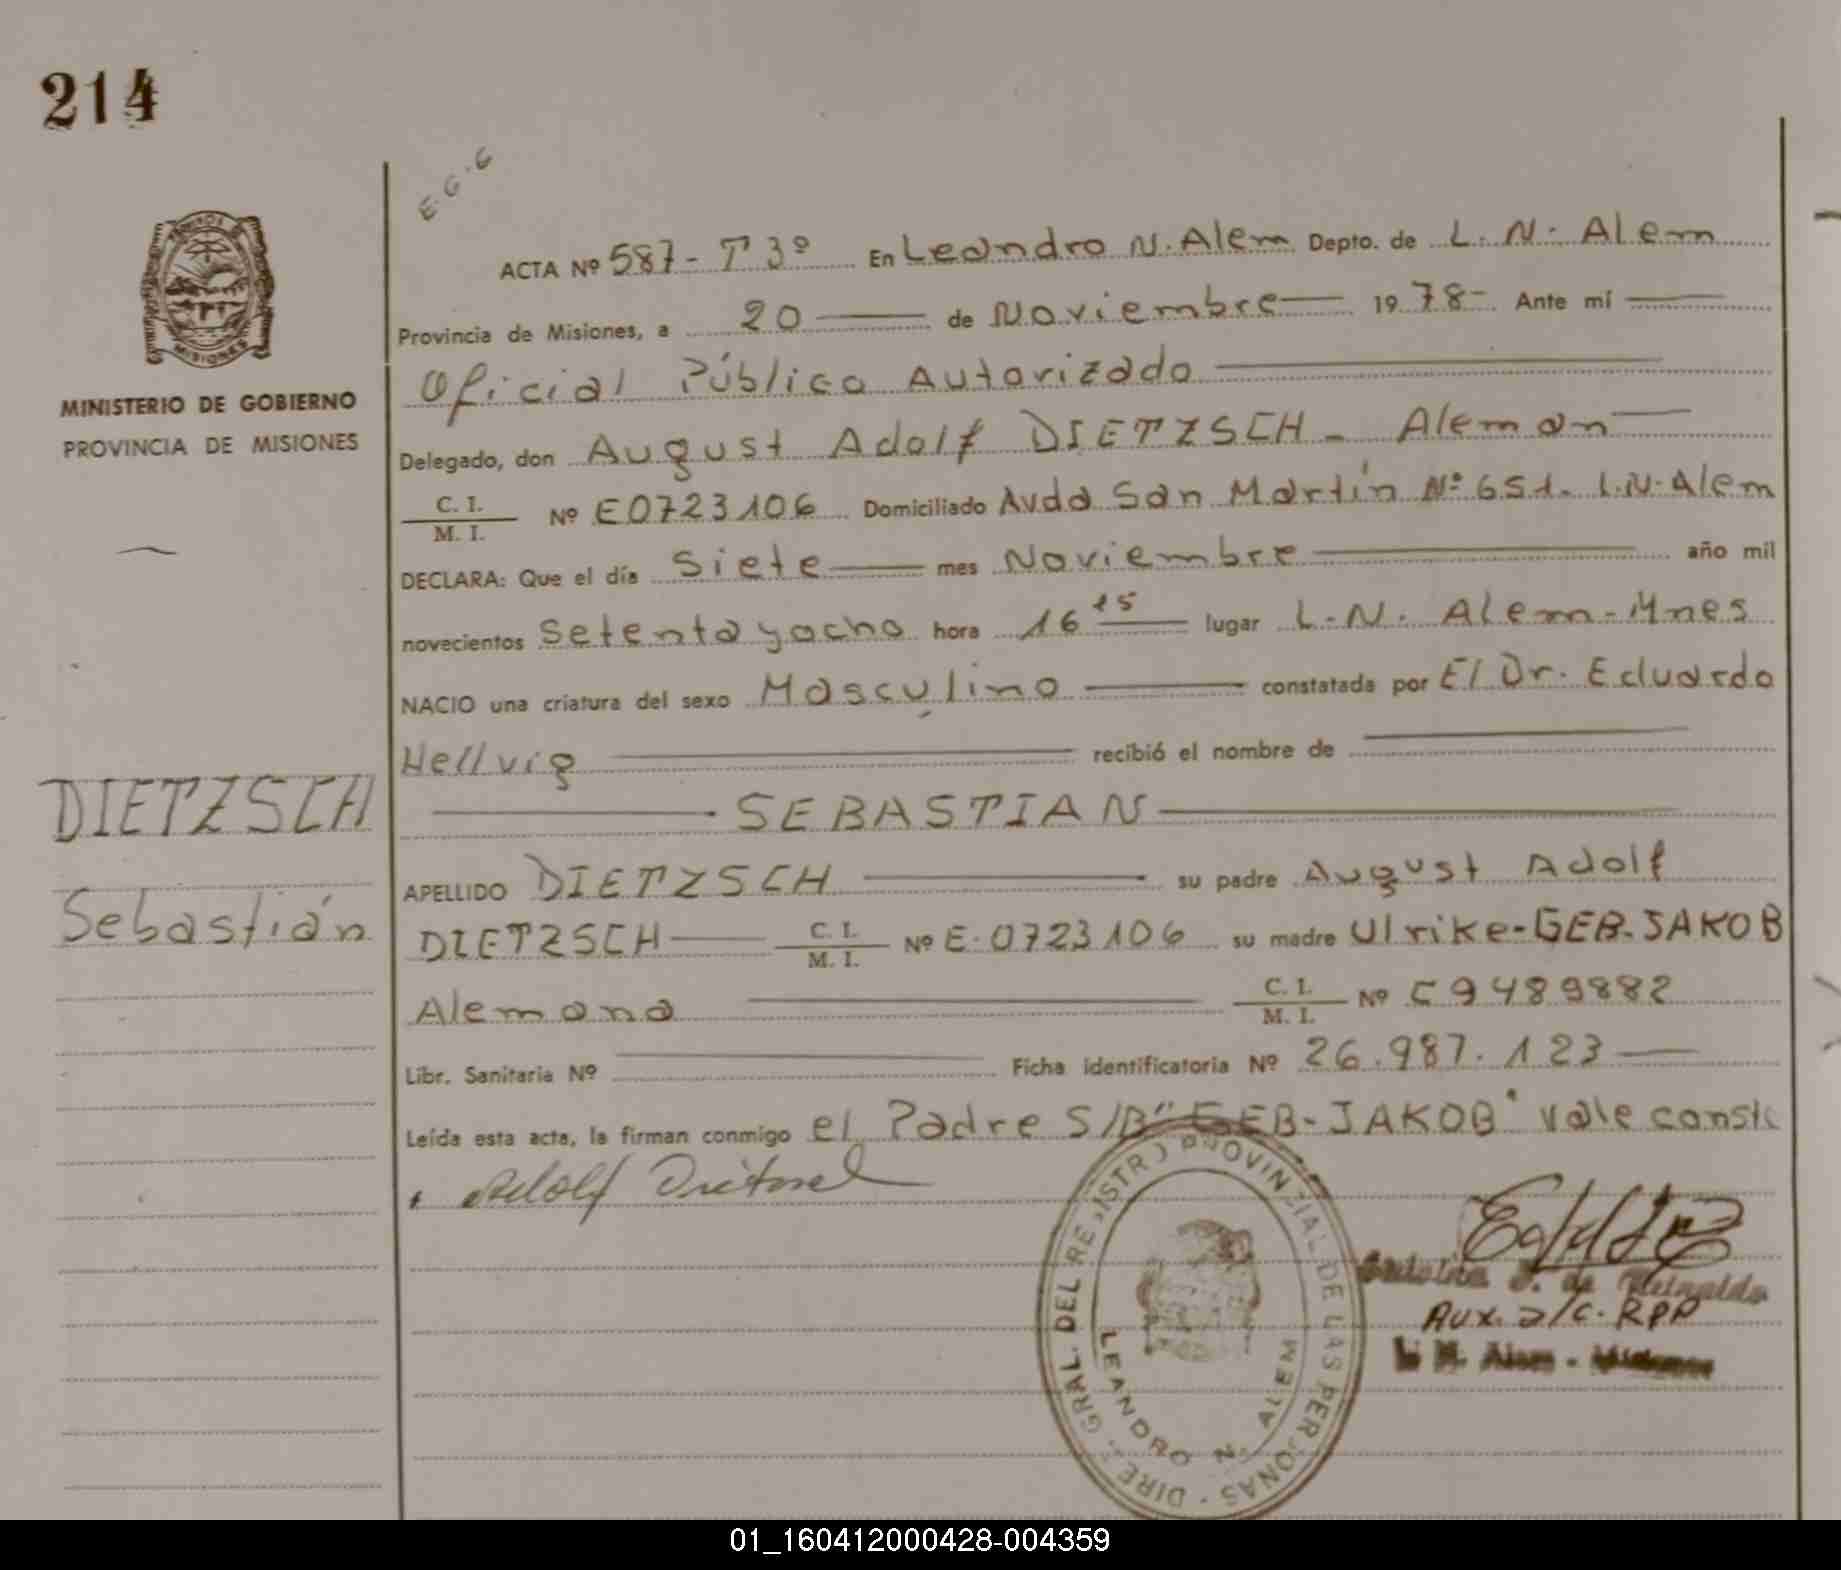 214
E.G.G
ACTA Nº 587- T 3º En Leandro N. Alem Depto. de L. N. Alem
Provincia de Misiones, a 20 de Noviembre 19 78- Ante mí
Oficial Público Autorizado
MINISTERIO DE GOBIERNO
PROVINCIA DE MISIONES
Delegado, don August Adolf DIETZSCH - Aleman
C. I.
M. I.
Nº E0723106 Domiciliado Avda San Martín Nº 651. L.N. Alem
DECLARA: Que el día Siete mes Noviembre año mil
novecientos Setenta y ocho hora 16 15 lugar L.N. Alem-Mnes
NACIO una criatura del sexo Masculino constatada por El Dr. Eduardo
Hellvig recibió el nombre de
SEBASTIAN
DIETZSCH
Sebastián
APELLIDO DIETZSCH su padre August Adolf
DIETZSCH C. I. M. I. Nº E.0723106 su madre Ulrike-GEB-JAKOB
Alemana C. I. M. I. Nº C9489882
Libr. Sanitaria Nº Ficha identificatoria Nº 26.987.123
Leída esta acta, la firman conmigo el Padre S/B "GEB-JAKOB" vale conste
Adolf
DIRE. GRAL. DEL REGISTRO PROVINZIAL DE LAS PERSONAS
LEANDRO N. ALEM
Aux. a/c. RPP
L. N. Alem - Misiones
01_160412000428-004359